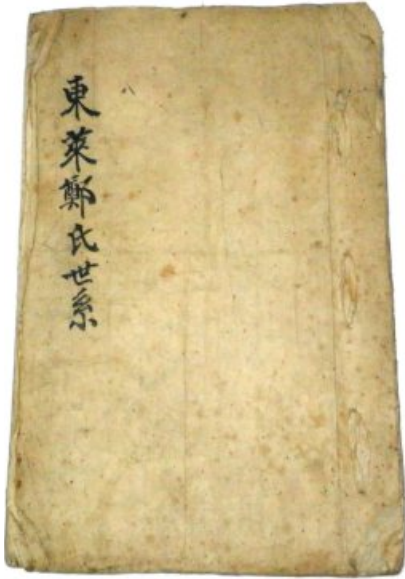 東萊鄭氏世系